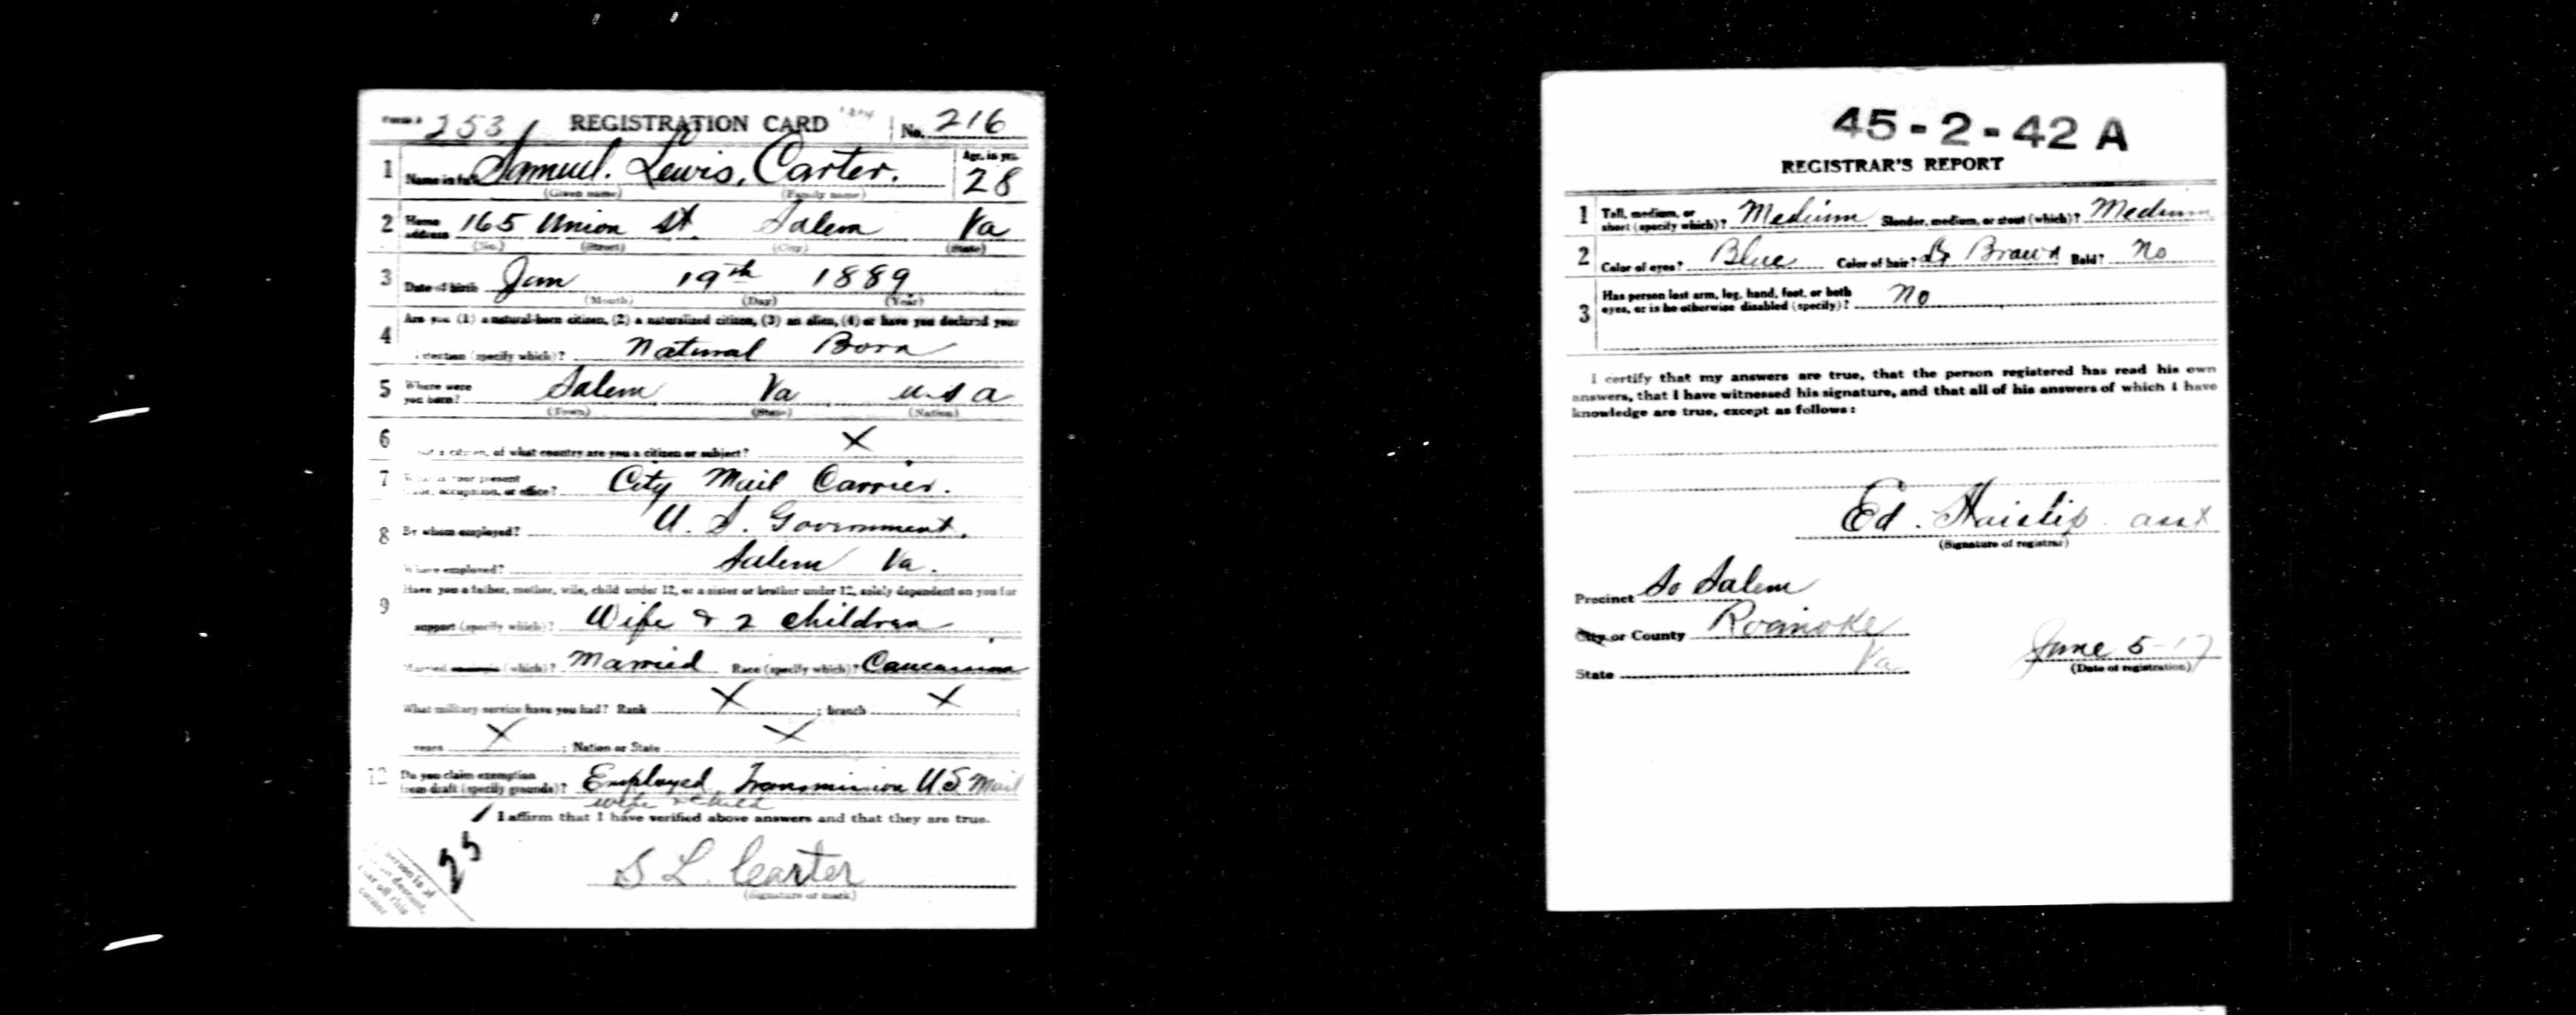 253 REGISTRATION CARD No. 216
1 Name in full Samuel. Lewis, Carter. Age, in yrs. 28
(Given name) (Family name)
2 Home address 165 Union St. Salem Va
(No.) (Street) (City) (State)
3 Date of birth Jan 19th 1889
(Month) (Day) (Year)
Are you (1) a natural-born citizen, (2) a naturalized citizen, (3) an alien, (4) or have you declared your
4 (specify which)? Natural Born
5 Where were you born? Salem Va U S A
(Town) (State) (Nation)
6 not a citizen, of what country are you a citizen or subject? X
7 What is your present
occupation, or office? City Mail Carrier.
8 By whom employed? U. S. Government,
Where employed? Salem Va.
Have you a father, mother, wife, child under 12, or a sister or brother under 12, solely dependent on you for
9 support (specify which)? Wife & 2 children
Married (which)? Married Race (specify which)? Caucasian
What military service have you had? Rank X ; branch X ;
years X ; Nation or State X
12 Do you claim exemption
from draft (specify grounds)? Employed Transmission U S Mail
wife & child
I affirm that I have verified above answers and that they are true.
S L. Carter
(Signature or mark)
person is of
descent,
tear off this
corner
45-2-42 A
REGISTRAR'S REPORT
1 Tall, medium, or
short (specify which)? Medium Slender, medium, or stout (which)? Medium
2 Color of eyes? Blue Color of hair? Brown Bald? No
3 Has person lost arm, leg, hand, foot, or both
eyes, or is he otherwise disabled (specify)? No
I certify that my answers are true, that the person registered has read his own
answers, that I have witnessed his signature, and that all of his answers of which I have
knowledge are true, except as follows:
Ed. Haislip asst
(Signature of registrar)
Precinct So Salem
City or County Roanoke
State Va
June 5-17
(Date of registration)